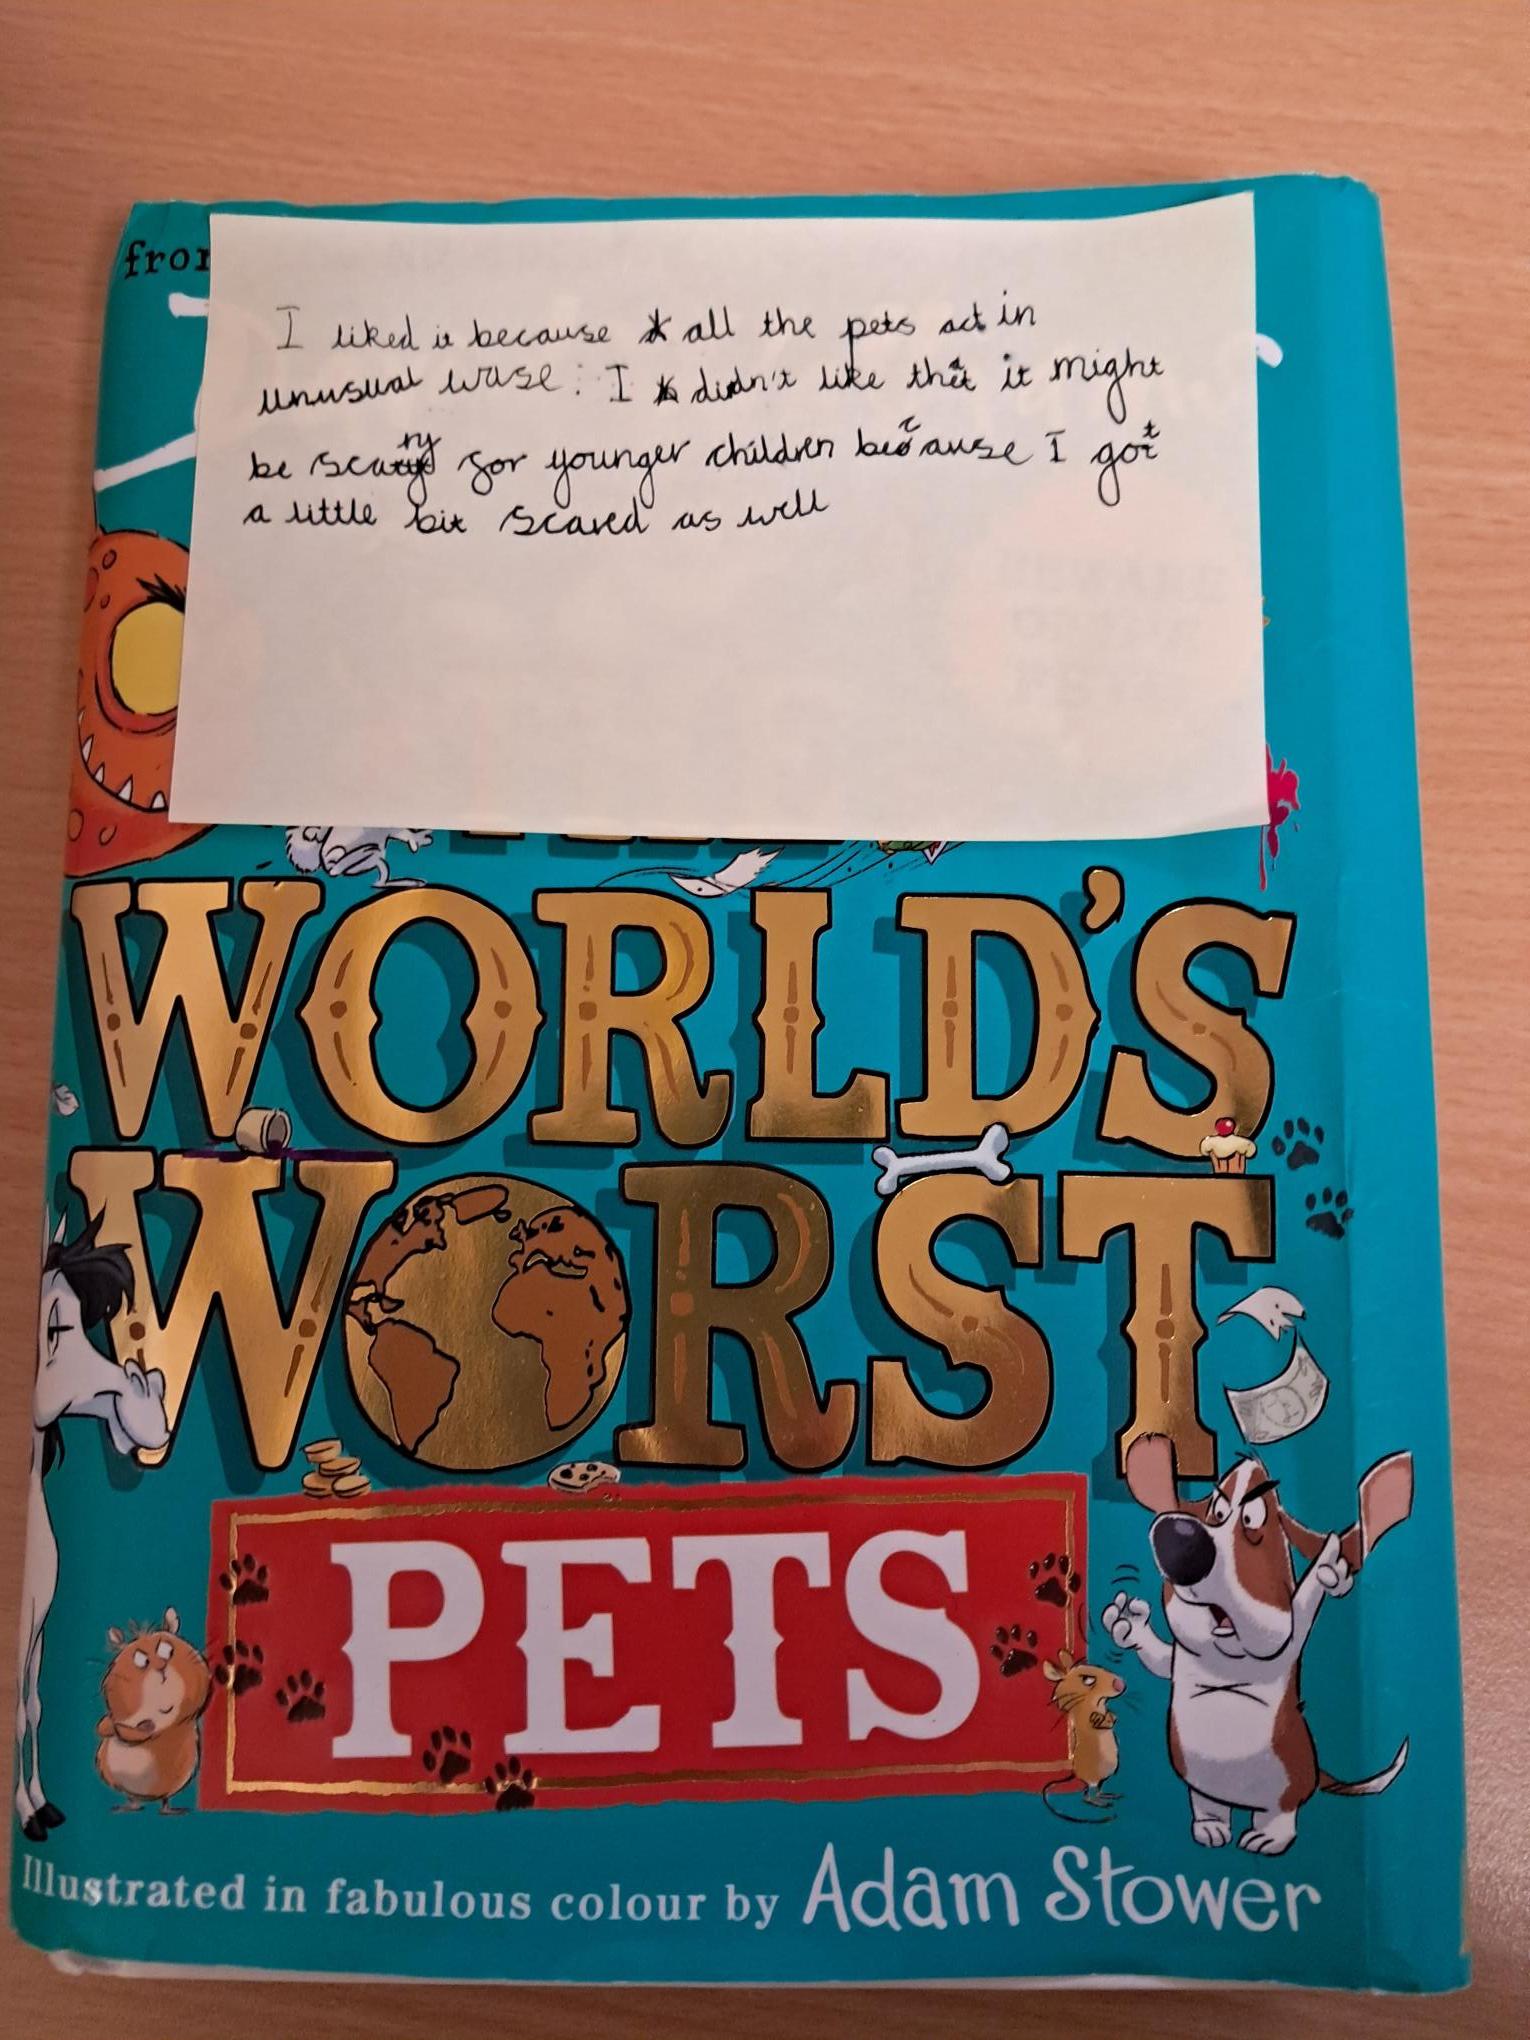 from
I liked it because all the pets act in
unusual wase. I didn't like that it might
be scary for younger children because I got
a little bit scared as well
WORLD'S
WORST
PETS
Illustrated in fabulous colour by Adam Stower